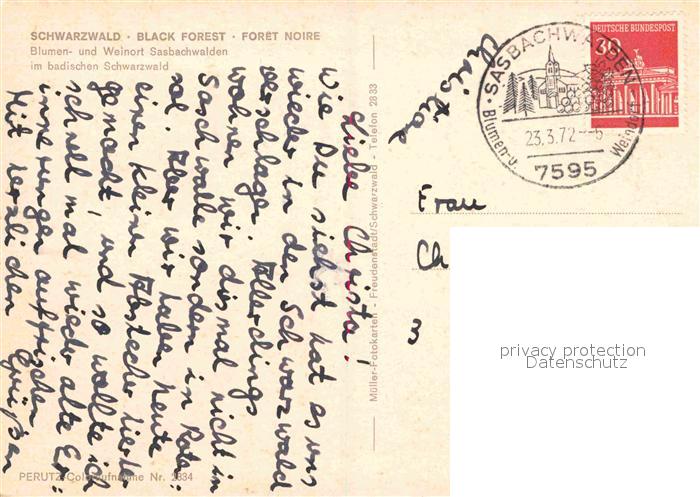 SCHWARZWALD · BLACK FOREST · FORÊT NOIRE
Blumen- und Weinort Sasbachwalden
im badischen Schwarzwald
Liebe Christa!
Wie Du siehst hat es uns
wieder in den Schwarzwald
verschlagen. Allerdings
wohnen wir dismal nicht in
Sasch walle sondern in Rota=
sol. Aber wir haben heute
einen kleinen Abstecher hierher
gemacht, und so wollte ich
schnell mal wieder alte Er=
innerungen auffrischen
Mit herzlichen Grüßen
Müller-Fotokarten - Freudenstadt/Schwarzwald - Telefon 28 33
PERUTZ-Coloraufnahme Nr. 2334
DEUTSCHE BUNDESPOST
30
SASBACHWALDEN
23.3.72--6
7595
Blumen-u. Weindorf
Frau
Ch
3
privacy protection
Datenschutz